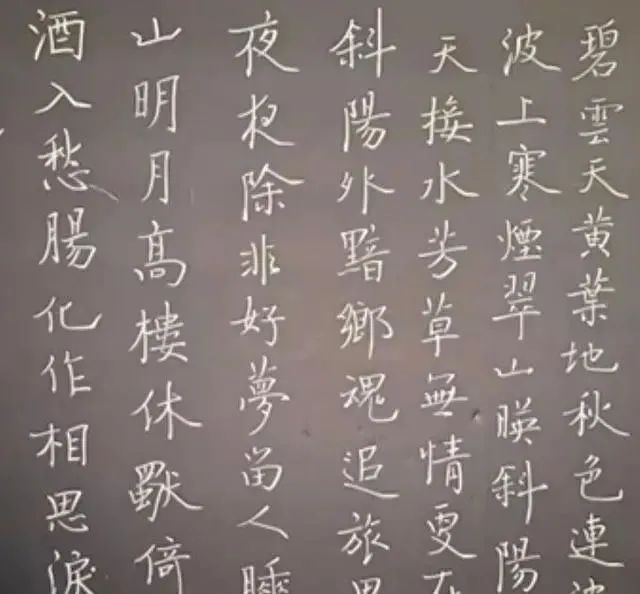 碧雲天黄葉地秋色連波
波上寒煙翠山暎斜陽
天接水芳草無情更在
斜陽外黯鄉魂追旅思
夜夜除非好夢留人睡
山明月高樓休獨倚
酒入愁腸化作相思淚